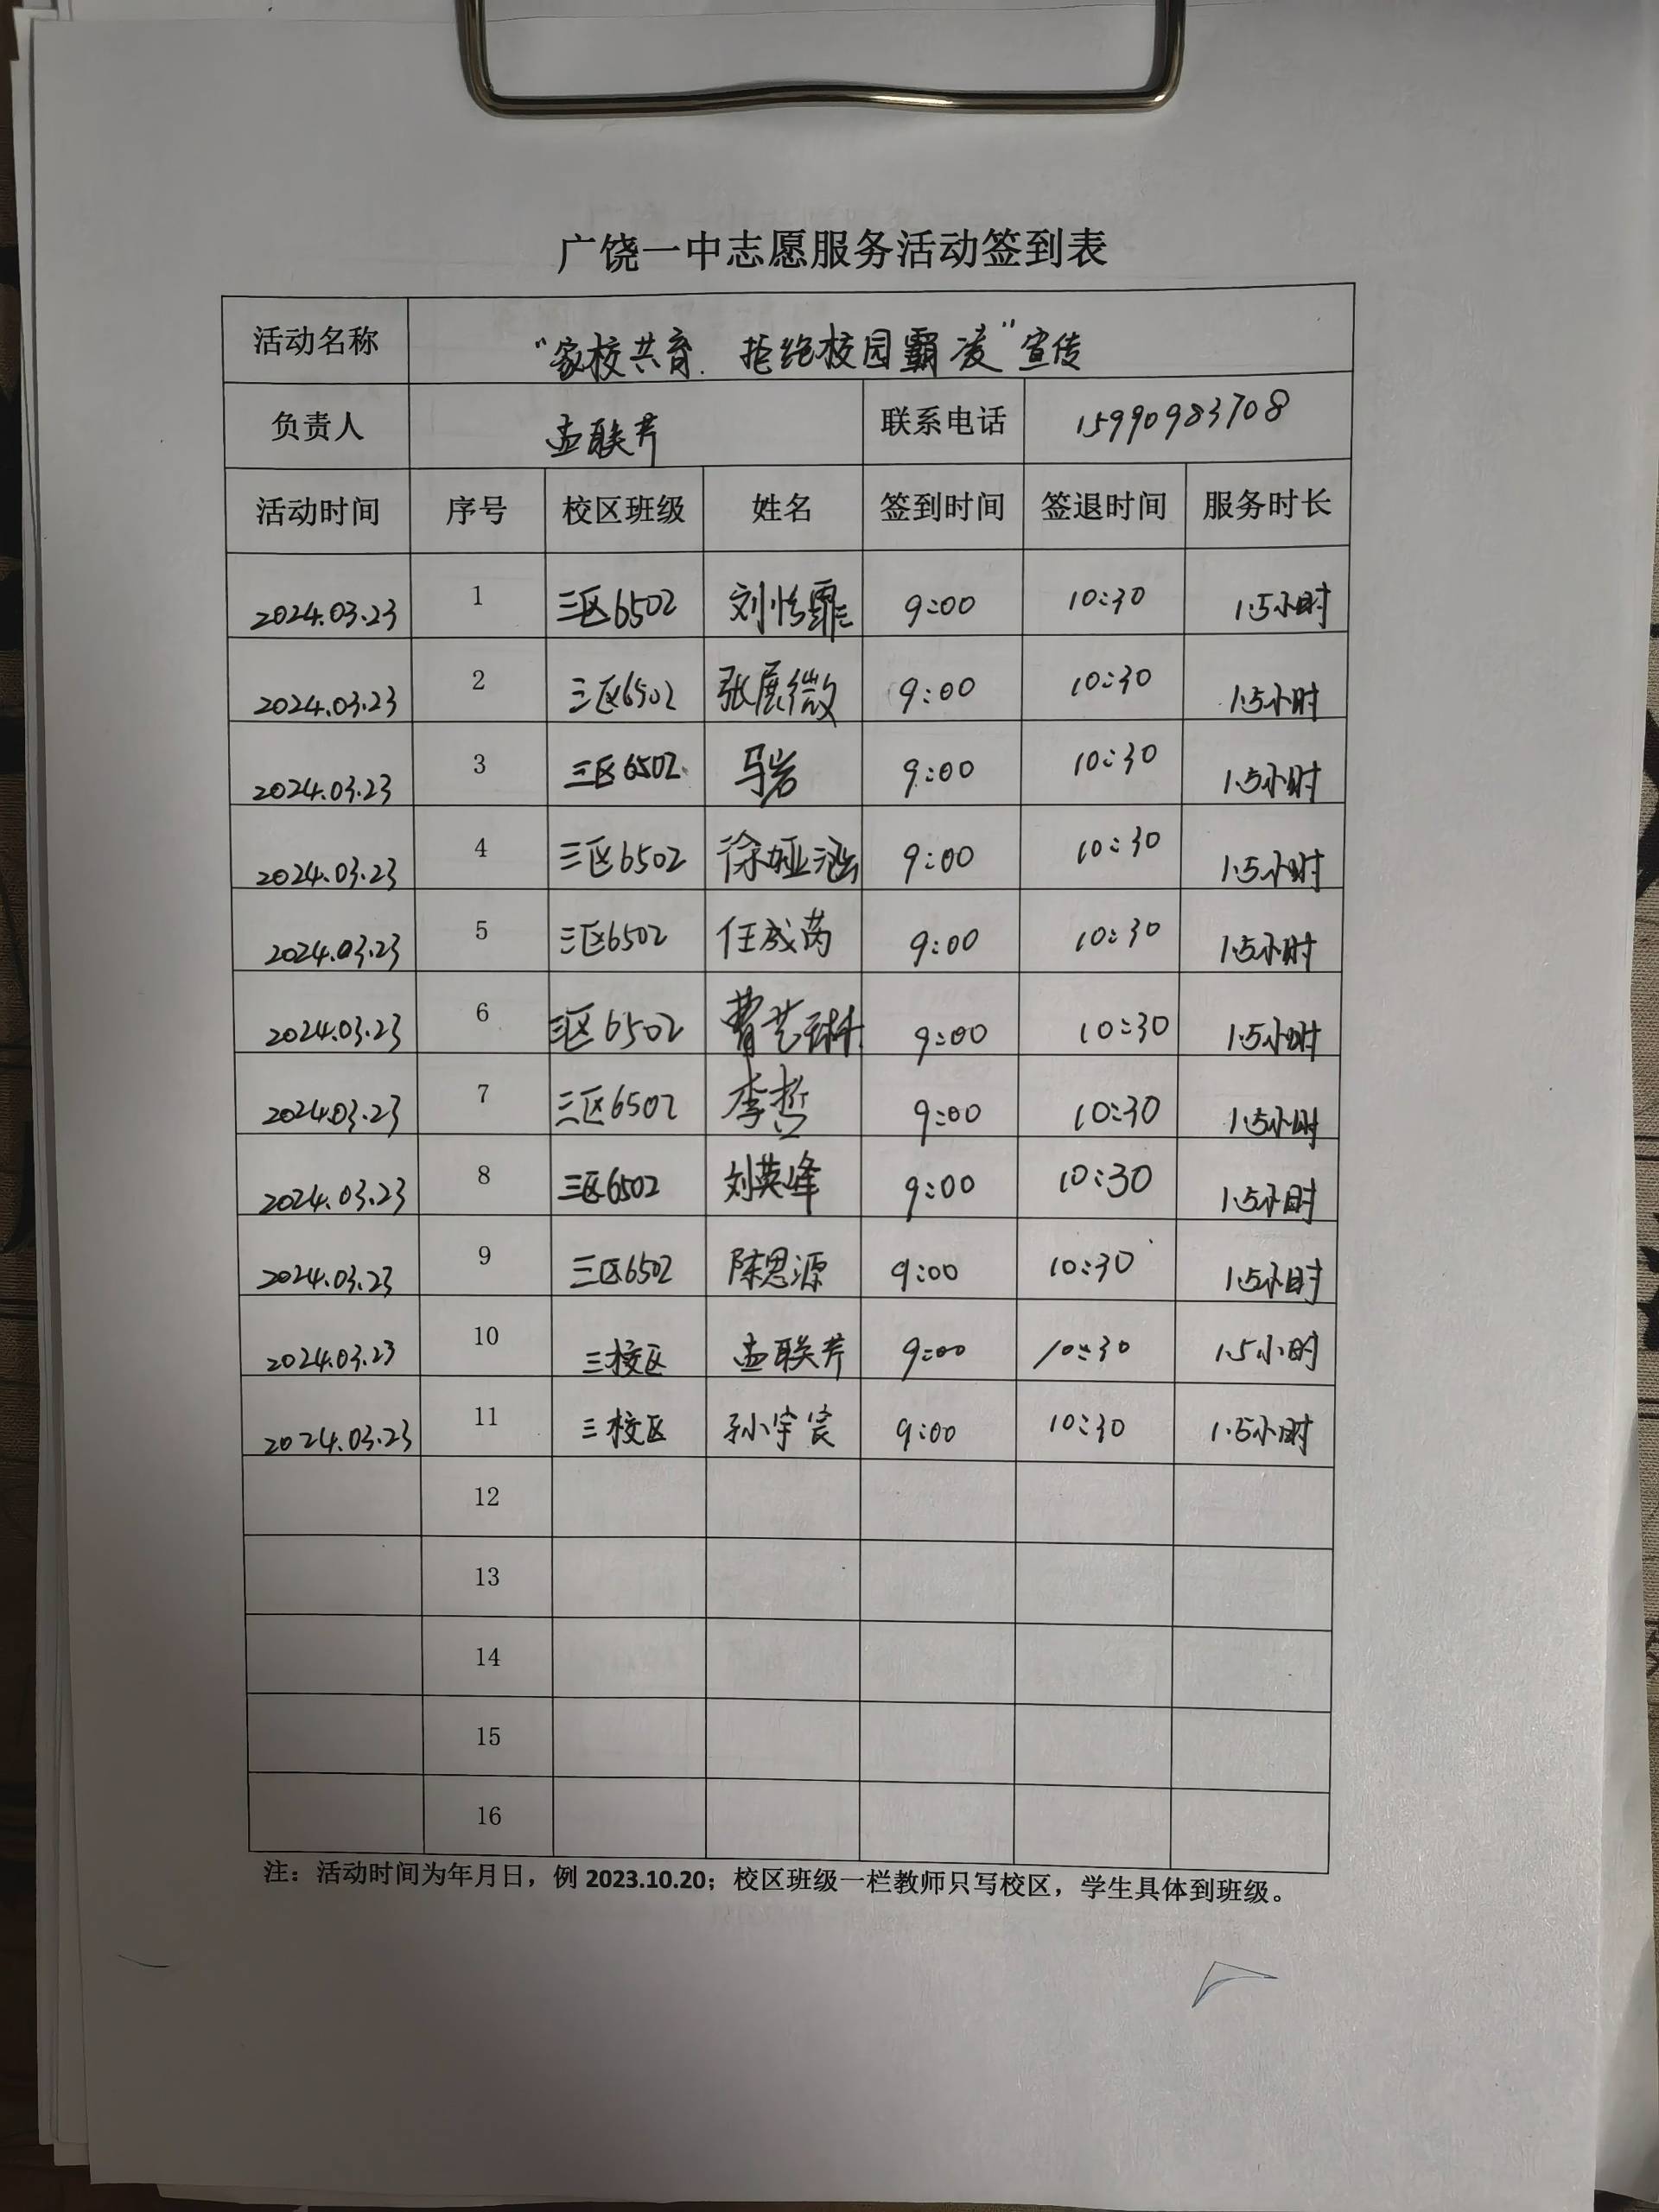 广饶一中志愿服务活动签到表
活动名称 “家校共育.拒绝校园霸凌”宣传
负责人 孟联芹 联系电话 15990983708
活动时间 序号 校区班级 姓名 签到时间 签退时间 服务时长
2024.03.23 1 三区6502 刘怡霏 9:00 10:30 1.5小时
2024.03.23 2 三区6502 张展微 9:00 10:30 1.5小时
2024.03.23 3 三区6502 马岩 9:00 10:30 1.5小时
2024.03.23 4 三区6502 徐娅涵 9:00 10:30 1.5小时
2024.03.23 5 三区6502 任成芮 9:00 10:30 1.5小时
2024.03.23 6 三区6502 曹艺琳 9:00 10:30 1.5小时
2024.03.23 7 三区6502 李哲 9:00 10:30 1.5小时
2024.03.23 8 三区6502 刘英峰 9:00 10:30 1.5小时
2024.03.23 9 三区6502 陈思源 9:00 10:30 1.5小时
2024.03.23 10 三校区 孟联芹 9:00 10:30 1.5小时
2024.03.23 11 三校区 孙宇 9:00 10:30 1.5小时
12
13
14
15
16
注：活动时间为年月日，例 2023.10.20；校区班级一栏教师只写校区，学生具体到班级。